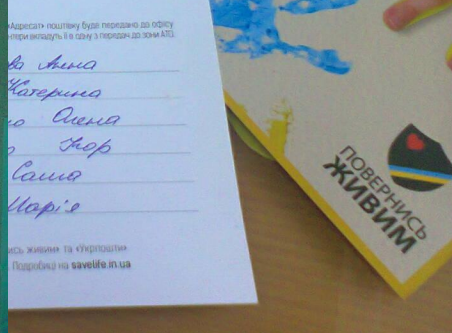 «Адресат» поштівку буде передано до офісу
нтери вкладуть її в одну з передач до зони АТО.
ва Анна
Катерина
но Олена
Ігор
Саша
Марія
ись живим» та «Укрпошти»
Подробиці на savelife.in.ua
ПОВЕРНИСЬ
ЖИВИМ